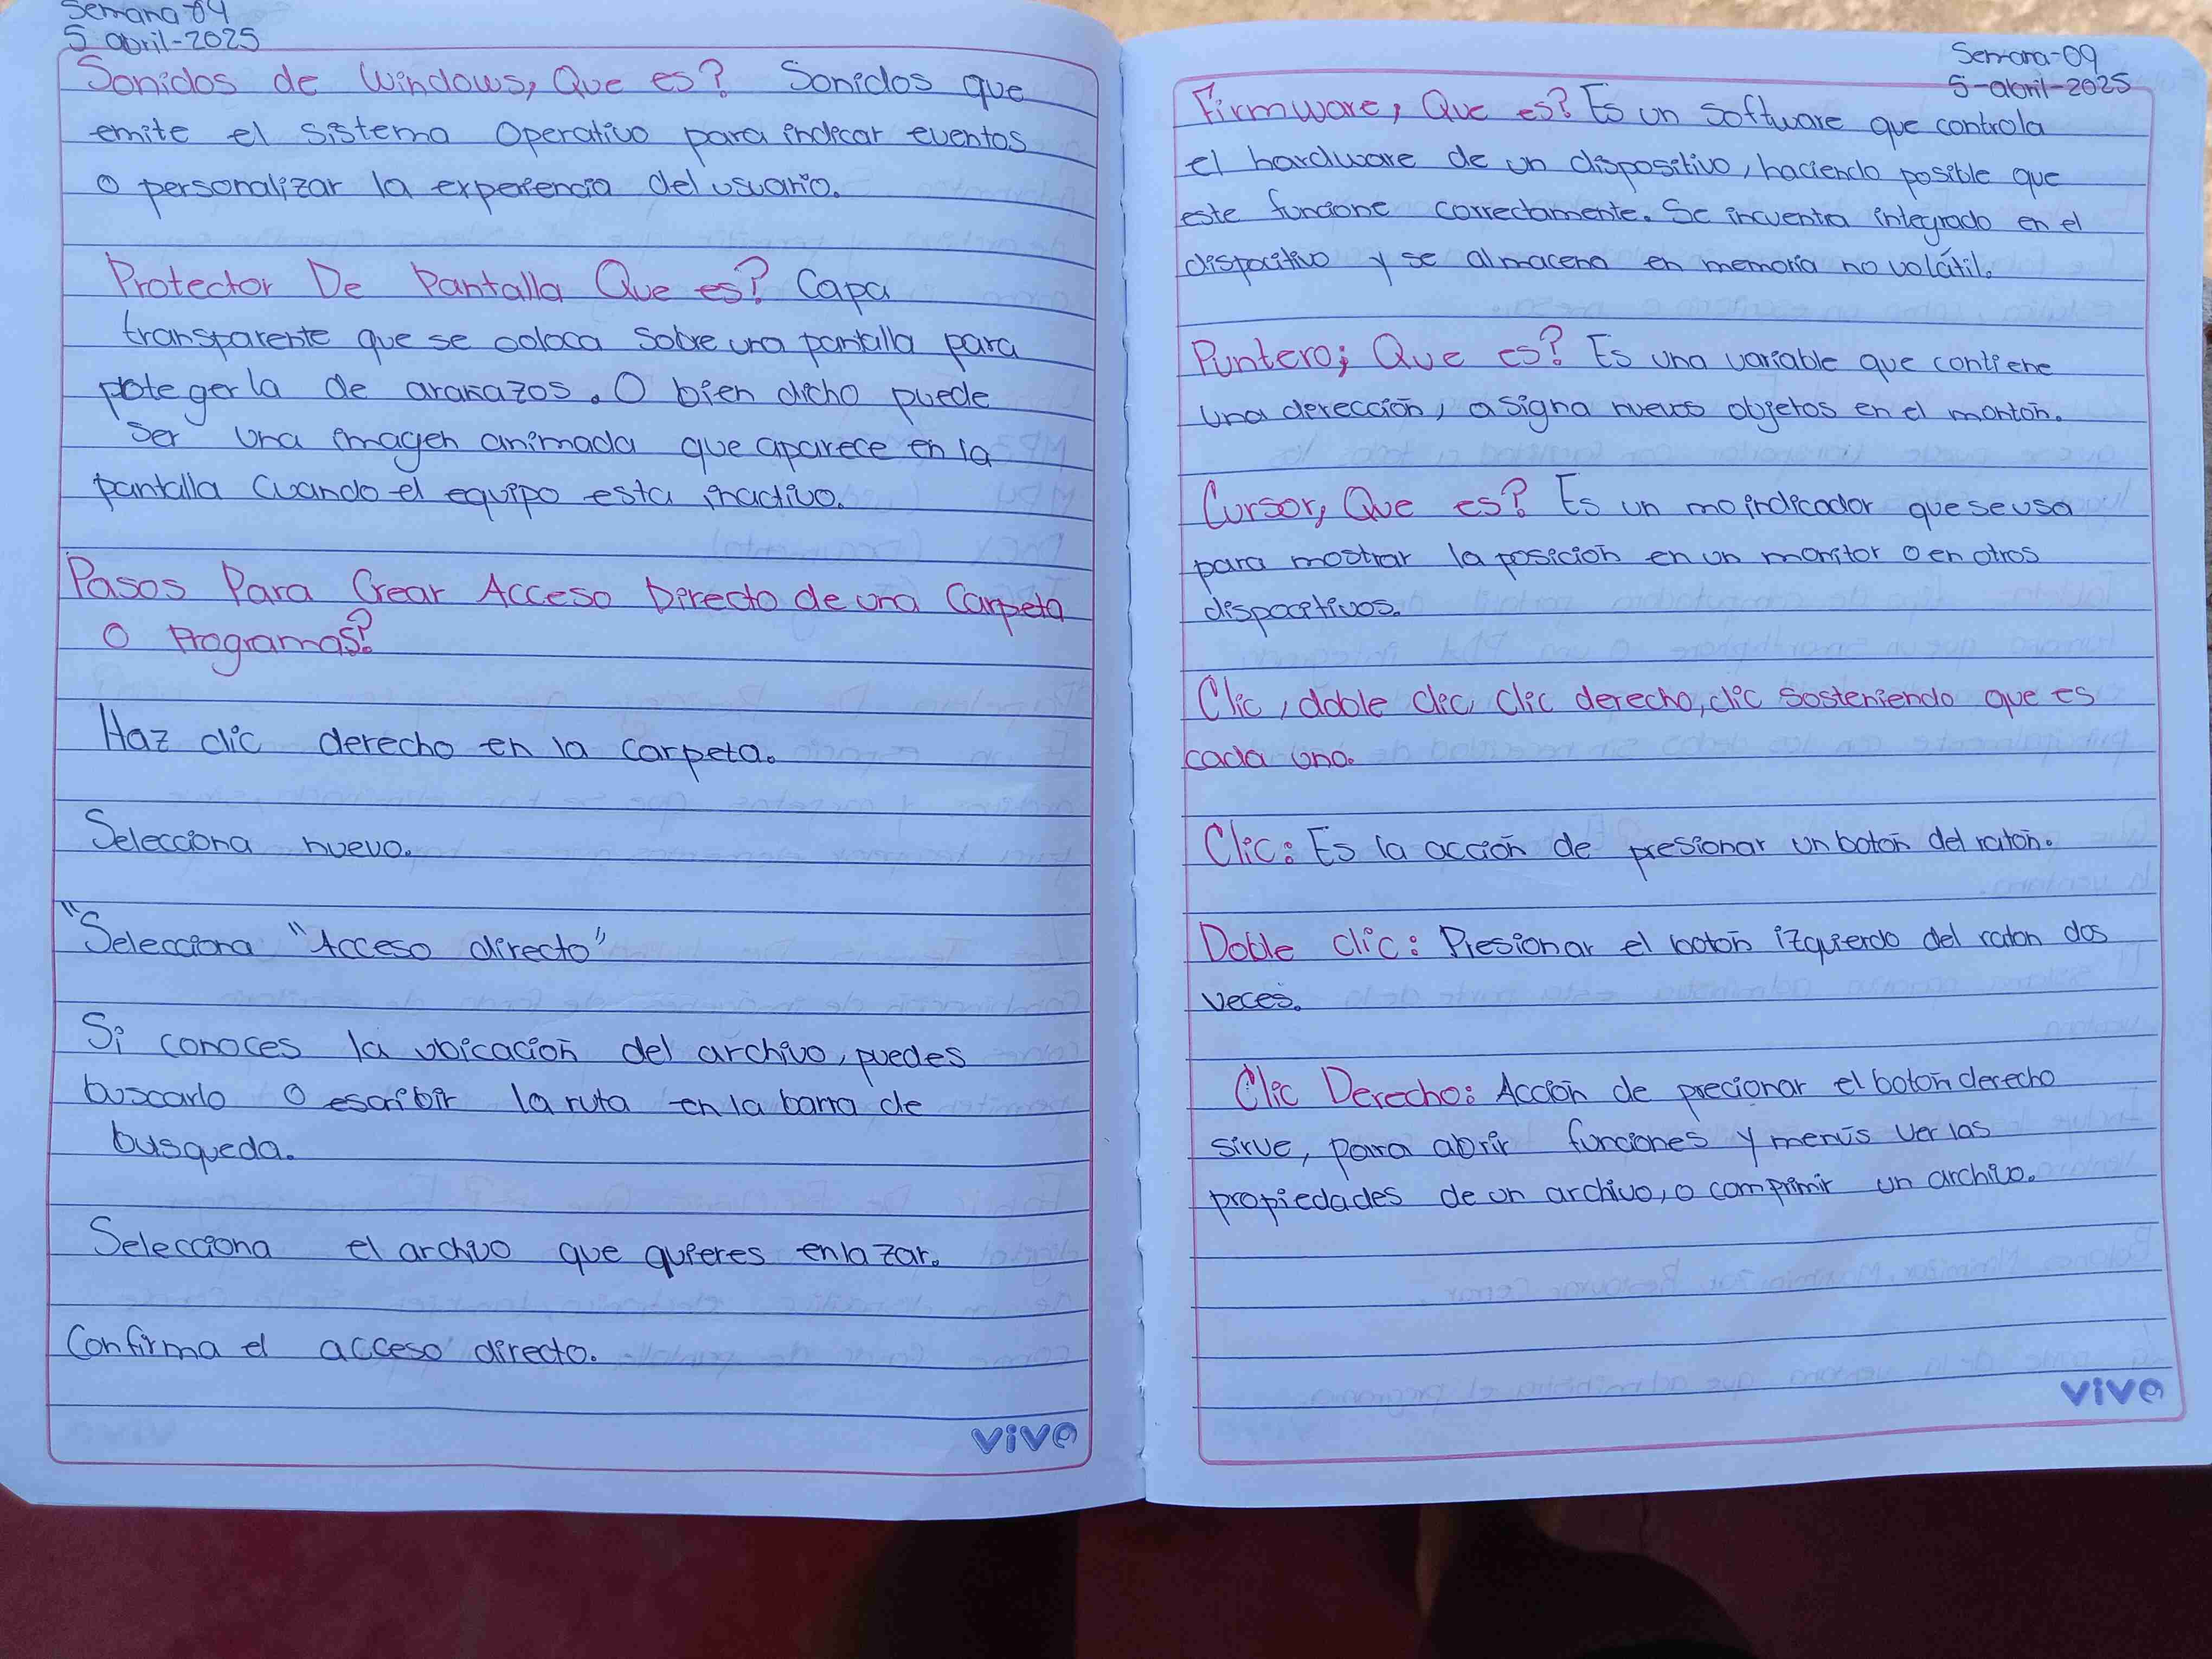 Semana 04
5 abril-2025
Sonidos de Windows, Que es? Sonidos que
emite el sistema Operativo para indicar eventos
o personalizar la experiencia del usuario.
Protector De Pantalla Que es? Capa
transparente que se coloca sobre una pantalla para
potegerla de arañazos. O bien dicho puede
ser una imagen animada que aparece en la
pantalla cuando el equipo esta inactivo.
Pasos Para Crear Acceso Directo de una Carpeta
O Programas?
Haz clic derecho en la carpeta.
Selecciona nuevo.
"Selecciona "Acceso directo"
Si conoces la ubicación del archivo, puedes
buscarlo o escribir la ruta en la barra de
busqueda.
Selecciona el archivo que quieres enlazar.
Confirma el acceso directo.
vive
Semana-09
5-abril-2025
Firmware, Que es? Es un software que controla
el hardware de un dispositivo, haciendo posible que
este funcione correctamente. Se incuentra integrado en el
dispocitivo y se almacena en memoria no volátil.
Puntero; Que es? Es una variable que contiene
una derección, asigna nuevos objetos en el montón.
Cursor, Que es? Es un mo indicador que se usa
para mostrar la posición en un monitor o en otros
dispocitivos.
Clic, doble clic, clic derecho, clic sosteniendo que es
cada uno.
Clic: Es la acción de presionar un botón del ratón.
Doble clic: Presionar el botón izquierdo del raton dos
veces.
Clic Derecho: Acción de precionar el botón derecho
sirve, para abrir funciones y menús ver las
propiedades de un archivo, o comprimir un archivo.
vive